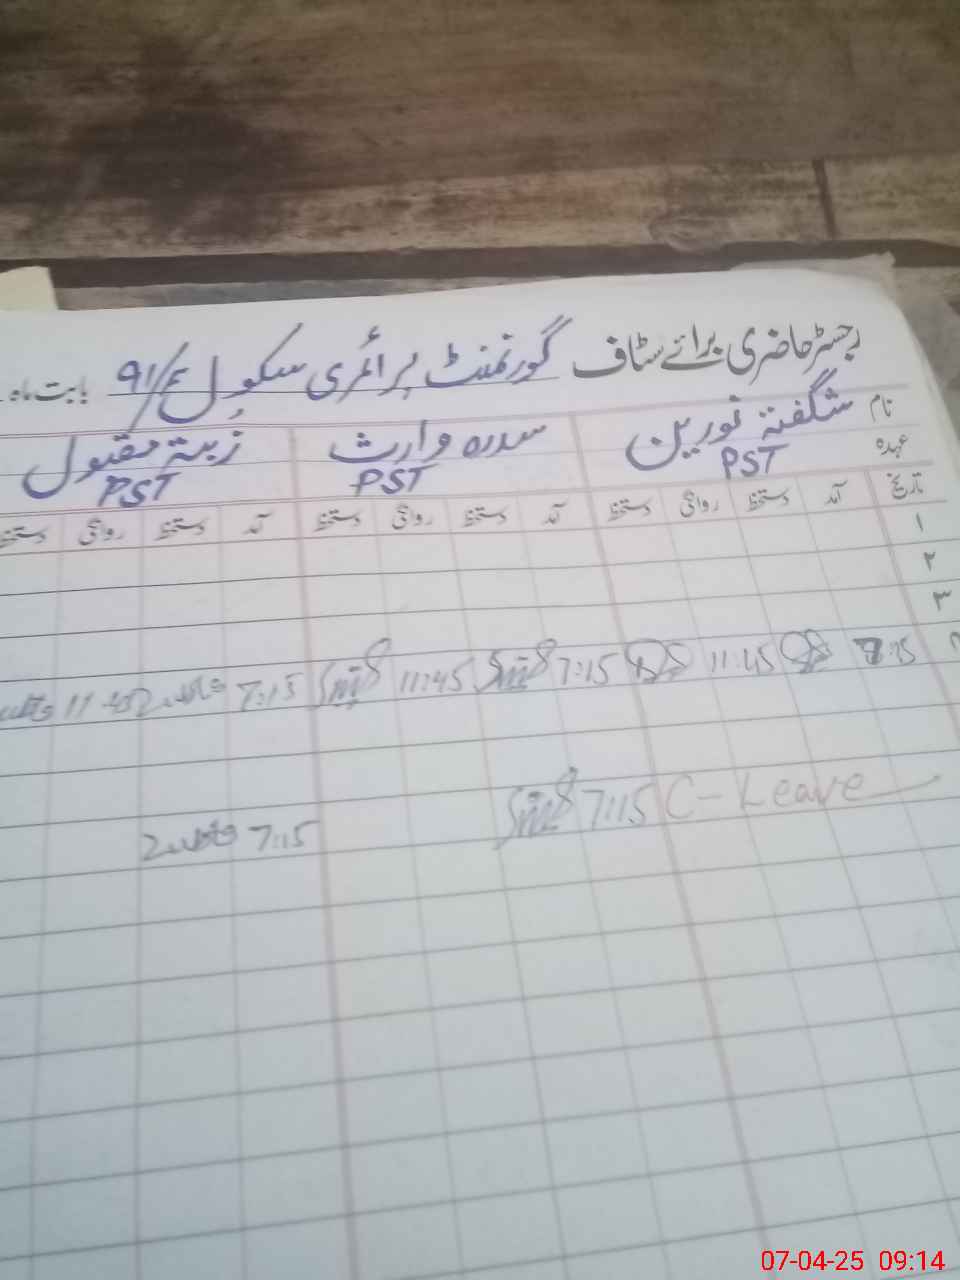 رجسٹر حاضری برائے سٹاف گورنمنٹ پرائمری سکول 91/ بابت ماہ
نام شگفتہ نورین سدرہ وارث زبیتہ مقبول
عہدہ PST PST PST
تاریخ آمد دستخط روانگی دستخط آمد دستخط روانگی دستخط آمد دستخط روانگی دستخط
۱
۲
۳
7:15 11:45 7:15 11:45 7:15 11:45
C-Leave 7:15 7:15
07-04-25 09:14